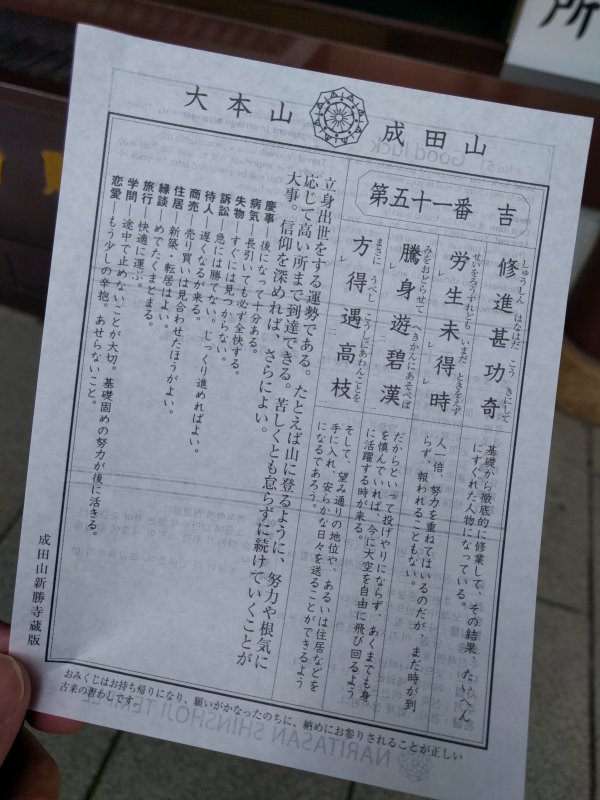 所
大本山 成田山
第五十一番 吉
修進甚功奇
しゅうしん はなはだ こう きにして
労生未得時
せいをろうすれども いまだ ときをえず
騰身遊碧漢
みをおどらせて へきかんにあそべば
方得遇高枝
まさに うべし こうしにあわんことを
基礎から徹底的に修業して、その結果、たいへん
にすぐれた人物になっている。
人一倍、努力を重ねてはいるのだが、まだ時が到
らず、報われることもない。
だからといって投げやりにならず、あくまでも身
を慎んでいれば、今に大空を自由に飛び回るよう
に活躍する時が来る。
そして、望み通りの地位や、あるいは住居などを
手に入れ、安らかな日々を送ることができるよう
になるであろう。
立身出世をする運勢である。たとえば山に登るように、努力や根気に
応じて高い所まで到達できる。苦しくとも怠らずに続けていくことが
大事。信仰を深めれば、さらによい。
慶事―後になって十分ある。
病気―長引いても必ず全快する。
失物―すぐには見つからない。
訴訟―急には勝てない。じっくり進めればよい。
待人―遅くなるが来る。
商売―売り買いは見合わせたほうがよい。
住居―新築・転居はよい。
縁談―めでたくまとまる。
旅行―快適に運ぶ。
学問―途中で止めないことが大切。基礎固めの努力が後に活きる。
恋愛―もう少しの辛抱。あせらないこと。
成田山新勝寺蔵版
おみくじはお持ち帰りになり、願いがかなったのちに、納めにお参りされることが正しい
古来の習わしです。
NARITASAN SHINSHOJI TEMPLE
Good luck
No.51